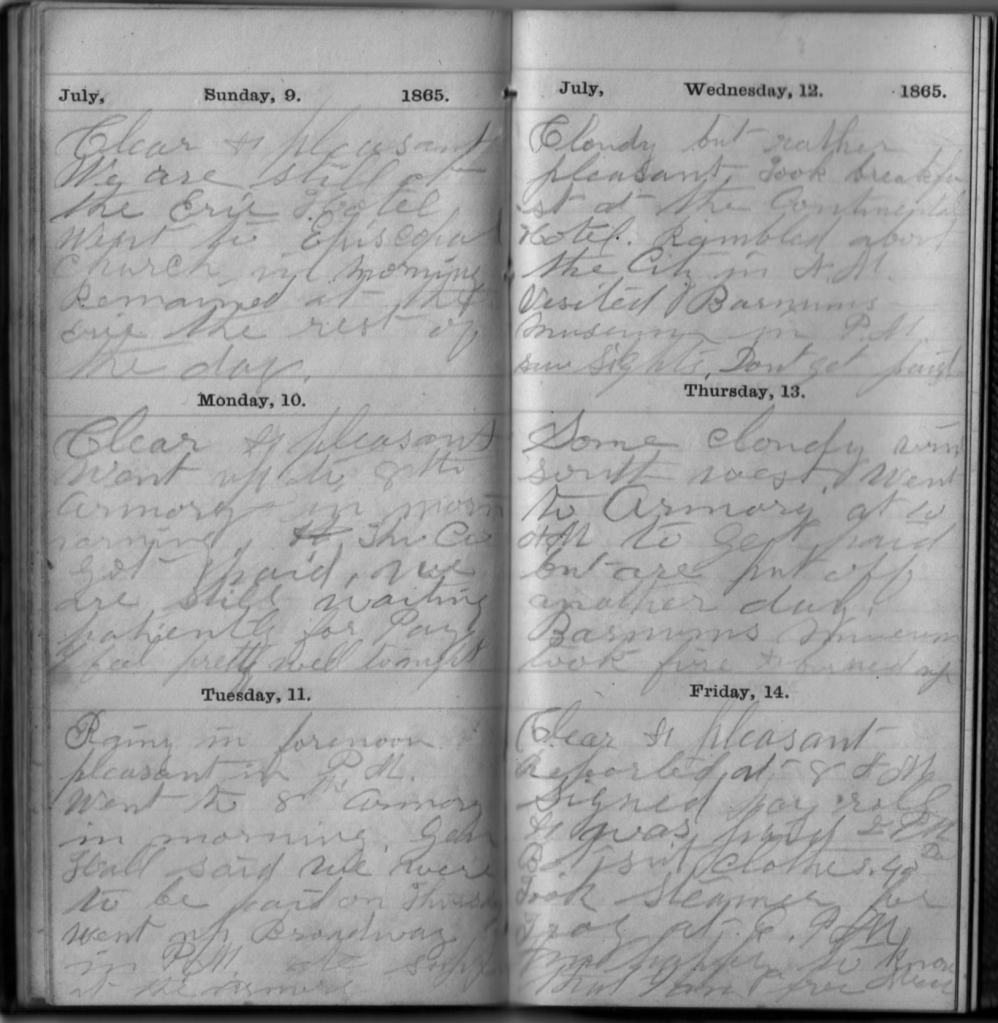 July, Sunday, 9. 1865.
Clear & pleasant
We are still at
the Erie Hotel
Went to Episcopal
church in morning
Remained at the
Erie the rest of
the day.
Monday, 10.
Clear & pleasant
Went up to 8th
Armory in morn
The Co
got paid, we
are still waiting
patiently for Pay
feel pretty well tonight
Tuesday, 11.
Rainy in forenoon
pleasant in P.M.
Went to 8th Armory
in morning. Gen
Hall said we were
to be paid on Thursday
went up Broadway
in P.M. ate
at the
July, Wednesday, 12. 1865.
Cloudy but rather
pleasant. Took breakfa
st at the Continental
Hotel. Rambled about
the City in A.M.
Visited Barnums
Museum in P.M.
saw Sights. Dont get paid
Thursday, 13.
Some cloudy win
south west. Went
to Armory at 10
AM to get paid
but are put off
another day.
Barnums Museum
took fire & burned up
Friday, 14.
Clear & pleasant
Reported at 8 A.M.
Signed pay rolls
& was paid 2 PM
suit clothes
Took steamer for
Troy at 6. P.M.
happy to know
that I am a free